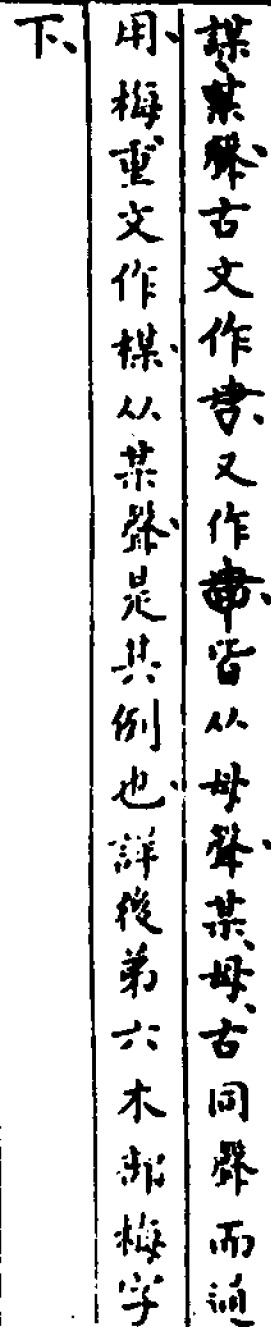 謀、某聲、古文作𠰔、又作𧦥、皆从母聲、某、母、古同聲而通
用、梅重文作楳、从某聲、是其例也、詳後第六木部梅字
下、